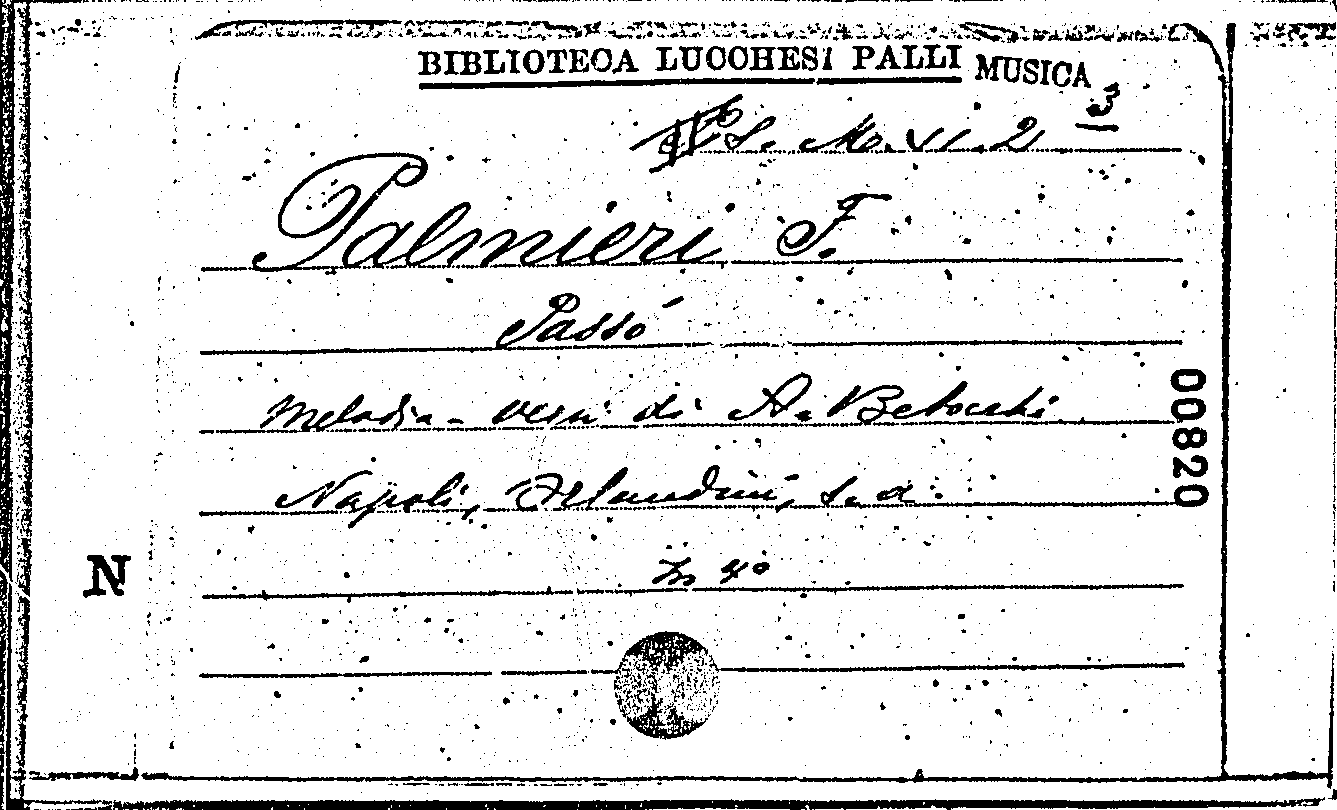 BIBLIOTECA LUCCHESI PALLI MUSICA
S. M. VI. 2 3
Palmieri F.
Passò
Melodia - versi di A. Betocchi
Napoli, Orlandini, s. a.
In 4°
N
00820